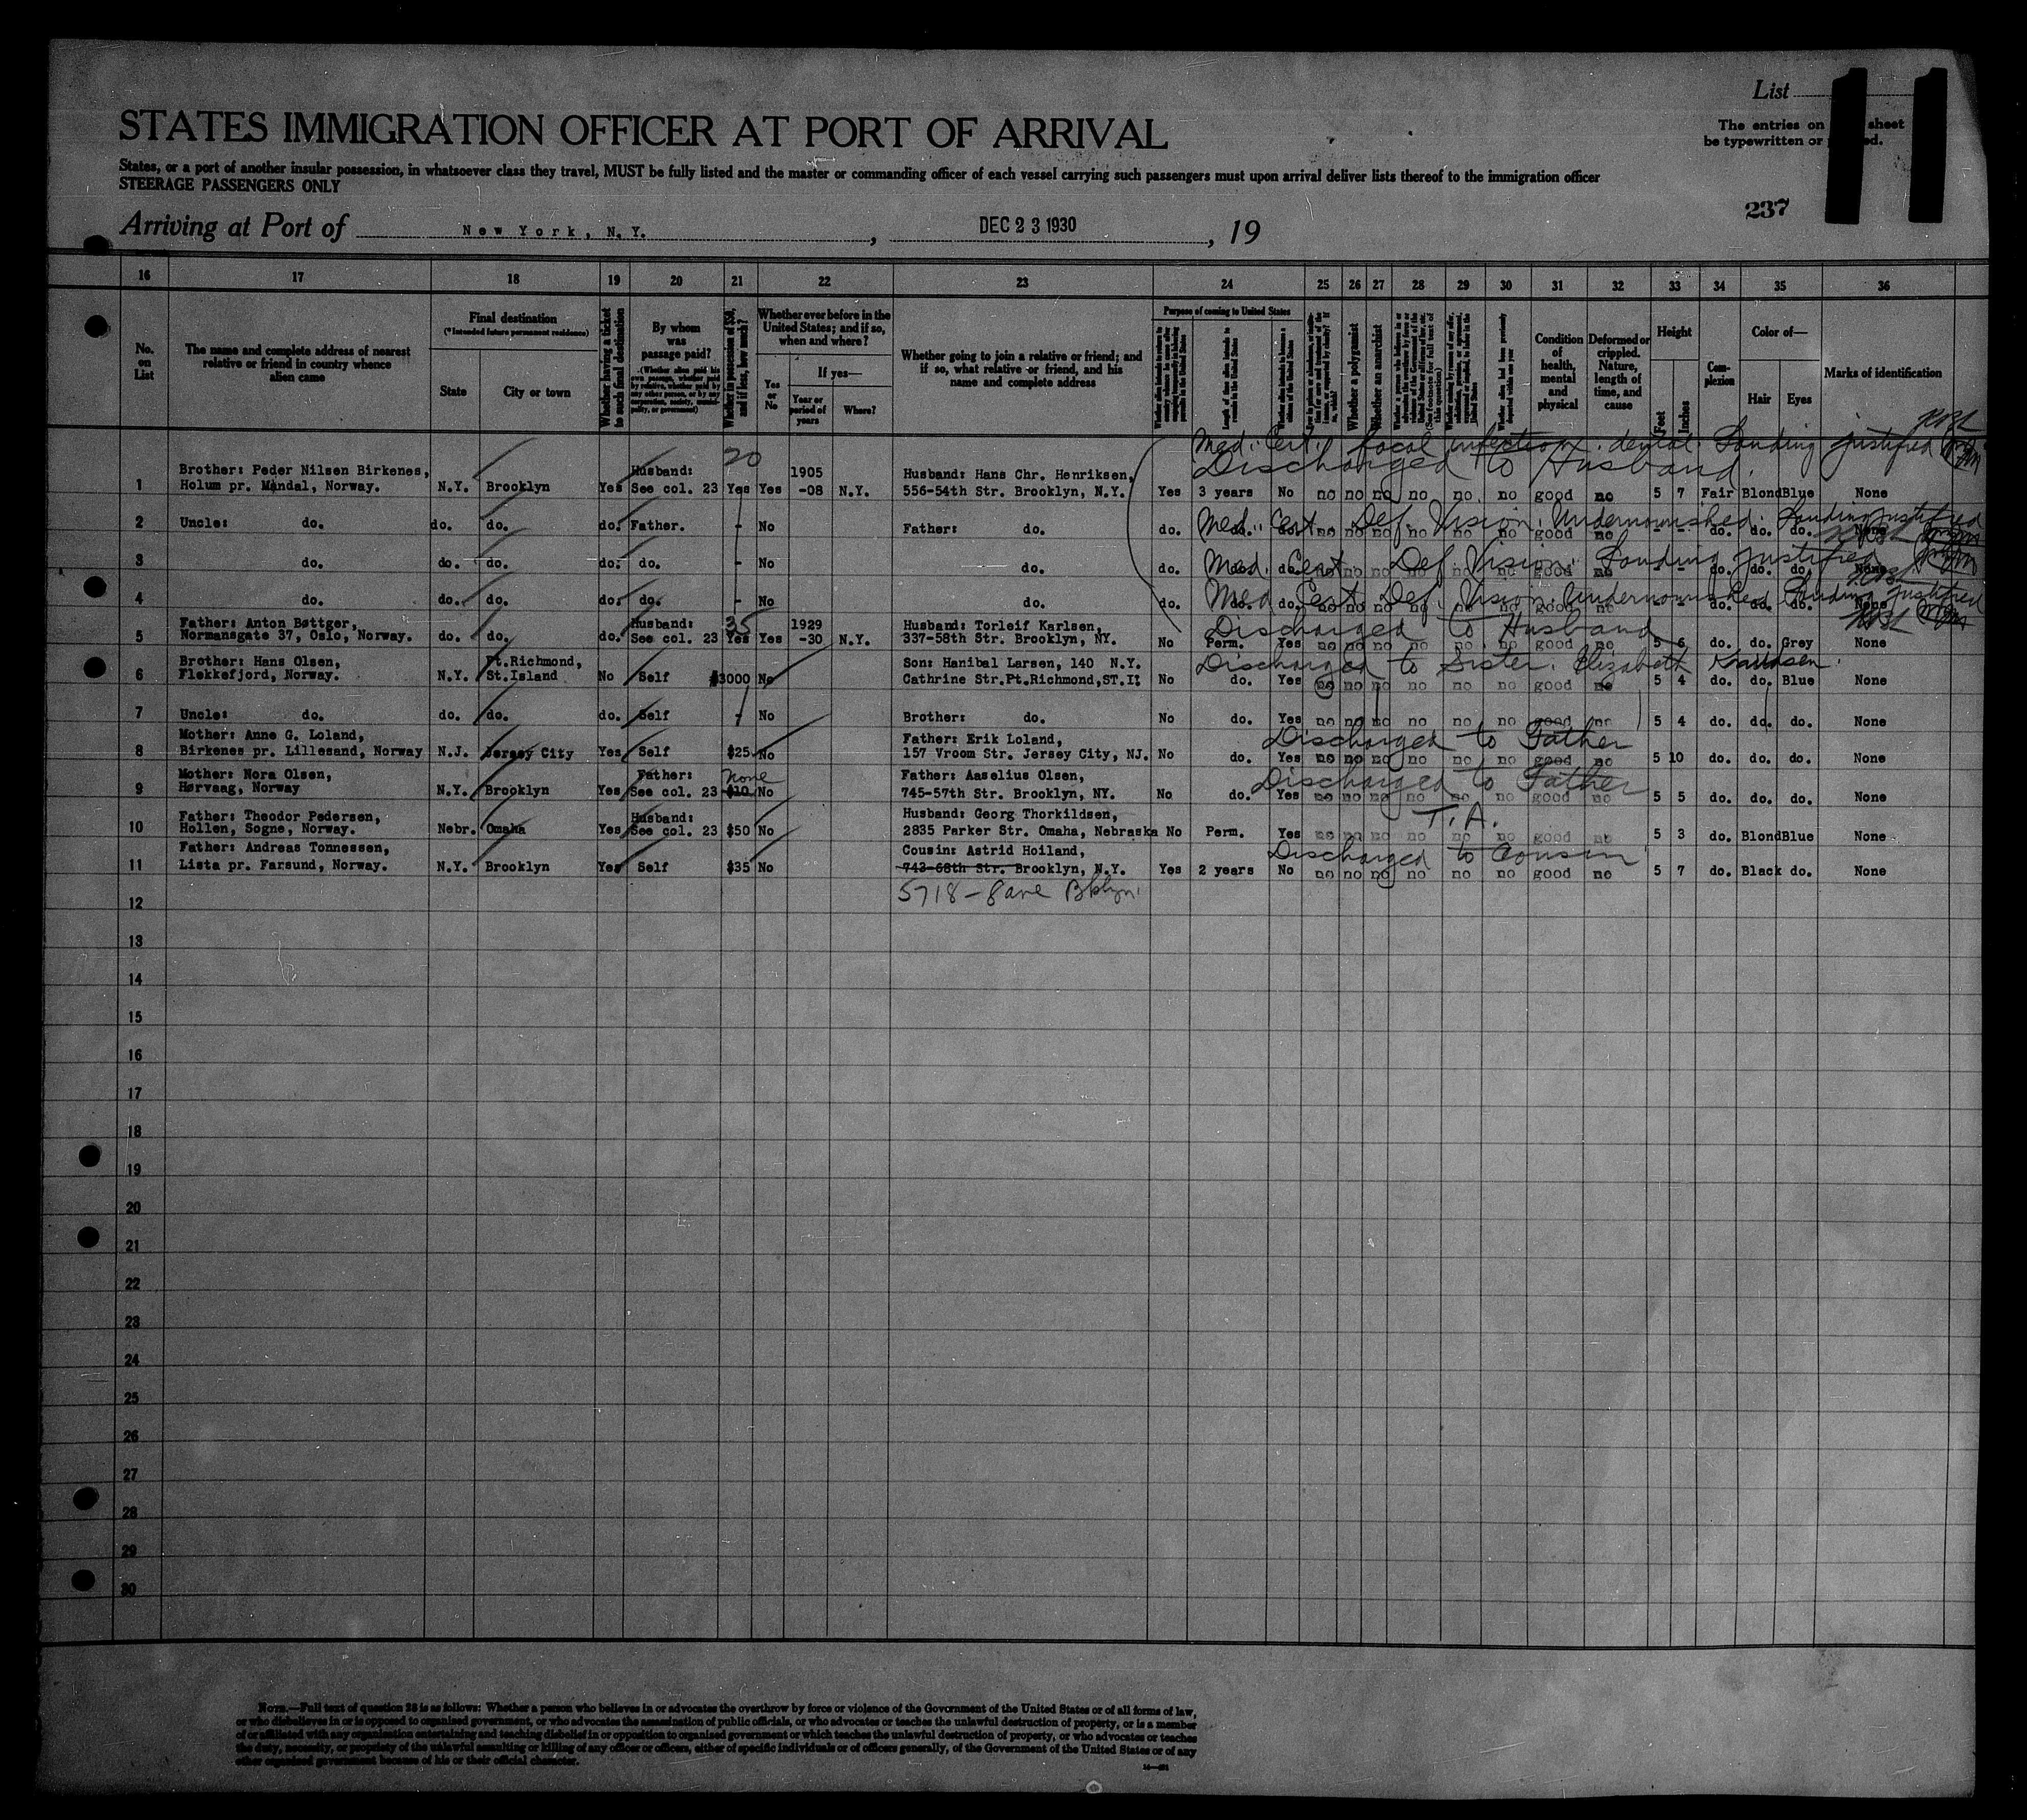 List 11
STATES IMMIGRATION OFFICER AT PORT OF ARRIVAL
The entries on sheet
be typewritten or
States, or a port of another insular possession, in whatsoever class they travel, MUST be fully listed and the master or commanding officer of each vessel carrying such passengers must upon arrival deliver lists thereof to the immigration officer
STEERAGE PASSENGERS ONLY
237
Arriving at Port of New York, N.Y. , DEC 23 1930 , 19
16 17 18 19 20 21 22 23 24 25 26 27 28 29 30 31 32 33 34 35 36
No. on List
The name and complete address of nearest relative or friend in country whence alien came
Final destination
(*Intended future permanent residence)
State
City or town
Whether having a ticket to such final destination
By whom was passage paid?
Whether in possession of $50, and if less, how much?
Whether ever before in the United States; and if so, when and where?
Yes or No
If yes—
Year or period of years
Where?
Whether going to join a relative or friend; and if so, what relative or friend, and his name and complete address
Purpose of coming to United States
Length of time alien intends to remain in the United States
Whether a polygamist
Whether an anarchist
Condition of health, mental and physical
Deformed or crippled. Nature, length of time, and cause
Height
Feet
Inches
Complexion
Color of—
Hair
Eyes
Marks of identification
Med. Cert. focal infection dental. Landing justified
Discharged to Husband.
20
1 Brother: Peder Nilsen Birkenes, Holum pr. Mandal, Norway. N.Y. Brooklyn Yes Husband: See col. 23 Yes Yes 1905 -08 N.Y. Husband: Hans Chr. Henriksen, 556-54th Str. Brooklyn, N.Y. Yes 3 years No no no no no no no good no 5 7 Fair Blond Blue None
Med. Cert. Def. Vision. Undernourished. Landing justified
2 Uncle: do. do. do. do. Father. - No Father: do. do. do. do. no no no no no no good no - - do. do. do. None
Med. Cert. Def. Vision. Landing justified
3 do. do. do. do. do. - No do. do. do. do. no no no no no good no - - do. do. do. None
Med. Cert. Def. Vision. Undernourished Landing justified
4 do. do. do. do. do. - No do. do. do. do. no no no no no no good no - - do. do. do. None
35 Discharged to Husband
5 Father: Anton Bøttger, Normansgate 37, Oslo, Norway. do. do. do. Husband: See col. 23 Yes Yes 1929 -30 N.Y. Husband: Torleif Karlsen, 337-58th Str. Brooklyn, NY. No Perm. Yes no no no no no no good no 5 6 do. do. Grey None
Discharged to Sister. Elizabeth
6 Brother: Hans Olsen, Flekkefjord, Norway. N.Y. Pt.Richmond, St.Island No Self $3000 No Son: Hanibal Larsen, 140 N.Y. Cathrine Str.Pt.Richmond,ST.I: No do. Yes no no no no no no good no 5 4 do. do. Blue None
7 Uncle: do. do. do. do. Self - No Brother: do. No do. Yes no no no no no no good no 5 4 do. do. do. None
Discharged to Father
8 Mother: Anne G. Loland, Birkenes pr. Lillesand, Norway N.J. Jersey City Yes Self $25 No Father: Erik Loland, 157 Vroom Str. Jersey City, NJ. No do. Yes no no no no no no good no 5 10 do. do. do. None
none Discharged to Father
9 Mother: Nora Olsen, Hørvaag, Norway N.Y. Brooklyn Yes Father: See col. 23 $10 No Father: Aaselius Olsen, 745-57th Str. Brooklyn, NY. No do. Yes no no no no no no good no 5 5 do. do. do. None
T.A.
10 Father: Theodor Pedersen, Hollen, Sogne, Norway. Nebr. Omaha Yes Husband: See col. 23 $50 No Husband: Georg Thorkildsen, 2835 Parker Str. Omaha, Nebraska No Perm. Yes no no no no no no good no 5 3 do. Blond Blue None
Discharged to Cousin
11 Father: Andreas Tonnessen, Lista pr. Farsund, Norway. N.Y. Brooklyn Yes Self $35 No Cousin: Astrid Hoiland, 743-68th Str. Brooklyn, N.Y. Yes 2 years No no no no no no no good no 5 7 do. Black do. None
5718-8 ave Bklyn.
12
13
14
15
16
17
18
19
20
21
22
23
24
25
26
27
28
29
30
NOTE.—Full text of question 28 is as follows: Whether a person who believes in or advocates the overthrow by force or violence of the Government of the United States or of all forms of law,
or who disbelieves in or is opposed to organized government, or who advocates the assassination of public officials, or who advocates or teaches the unlawful destruction of property, or is a member
of or affiliated with any organization entertaining and teaching disbelief in or opposition to organized government or which teaches the unlawful destruction of property, or who advocates or teaches
the duty, necessity, or propriety of the unlawful assaulting or killing of any officer or officers, either of specific individuals or of officers generally, of the Government of the United States or of any
other organized government because of his or their official character.